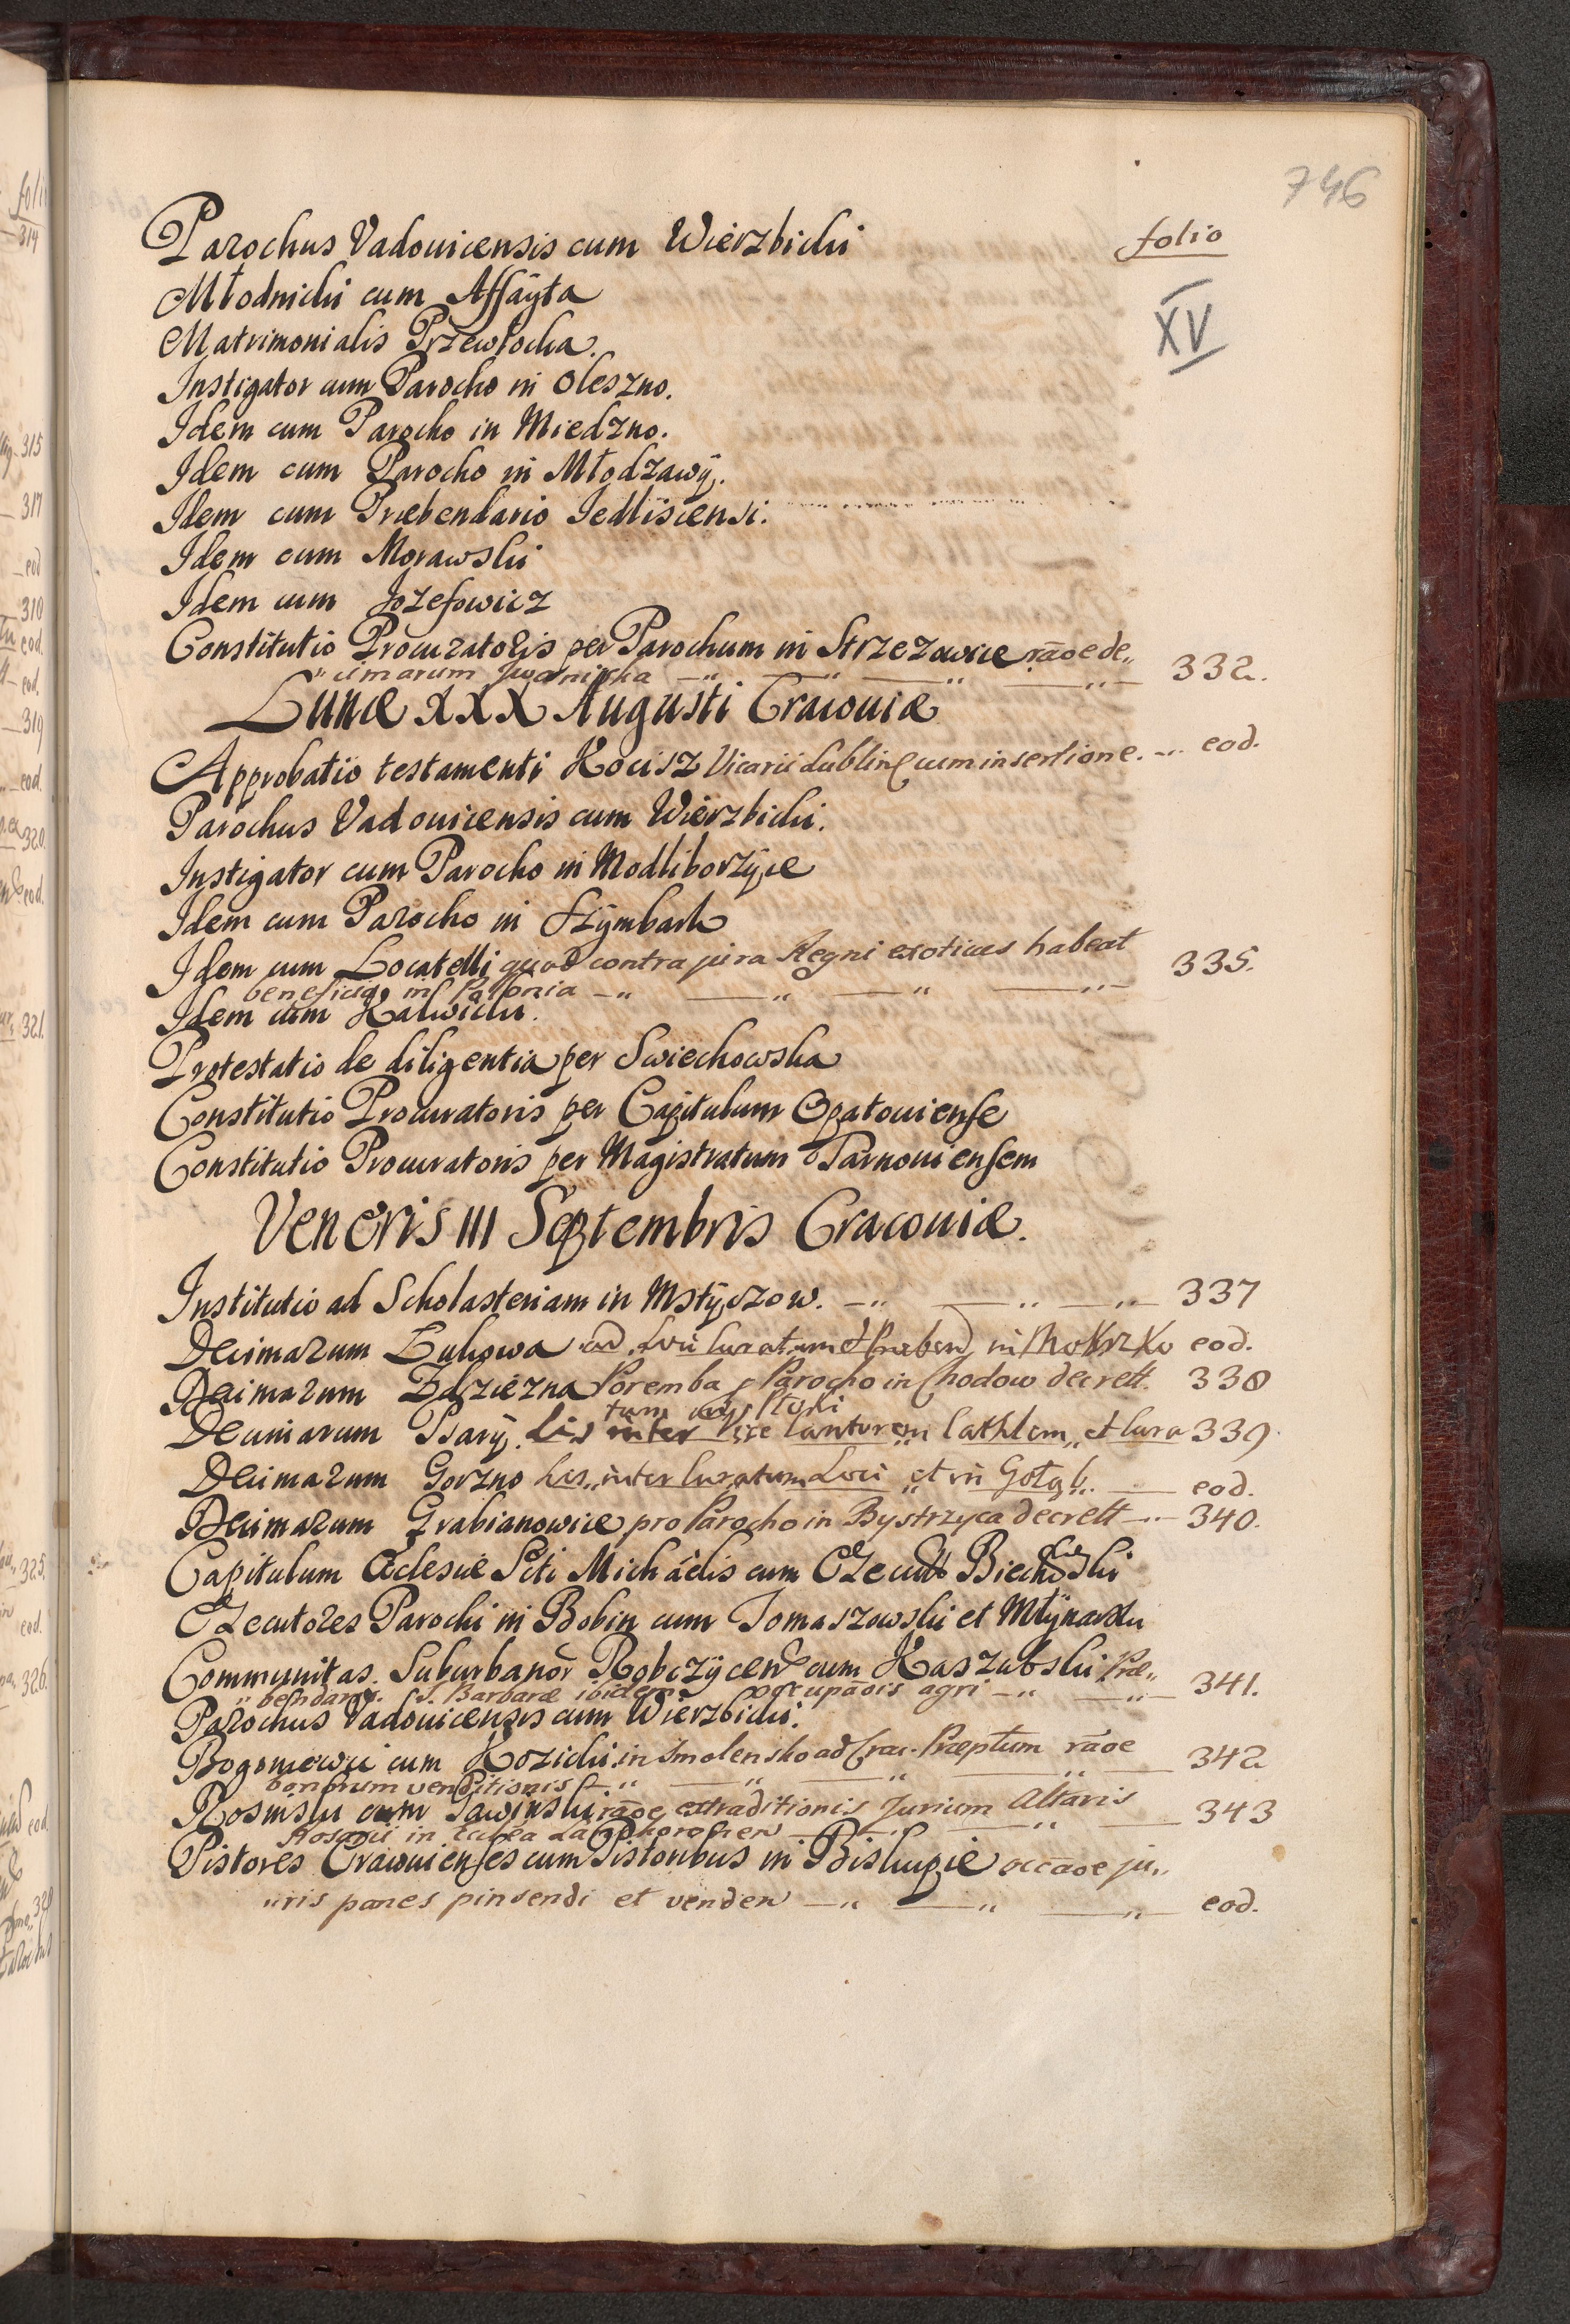 746
Parochus Vadoviensis cum Wierzbicki folio
Młodnicki cum Affayta XV
Matrimonialis Przewłocka.
Instigator cum Parocho in Oleszno.
Idem cum Parocho in Miedzno.
Idem cum Parocho in Młodzawÿ.
Idem cum Præbendario Jedlisiensi.
Idem cum Morawski
Idem cum Jozefowicz
Constitutio Procuratoris per Parochum in Strzezowice rāoe de„ 332.
„cimarum Iwaniska
Lunæ XXX Augusti Cracoviæ
Approbatio testamenti Kocisz Vicarii Lublin cum insertione. eod.
Parochus Vadovicensis cum Wierzbicki.
Instigator cum Parocho in Modliborzÿce
Idem cum Parocho in Szÿmbark
Idem cum Locatelli quod contra jura Regni exoticus habeat 335.
beneficia in Polonia
Idem cum Kalwicki.
Protestatio de diligentia per Swiechowska
Constitutio Procuratoris per Capitulum Opatoviense
Constitutio Procuratoris per Magistratum Tarnoviensem
Veneris III Septembris Cracoviæ.
Institutio ad Scholasteriam in Mstÿczow. 337
Decimarum Łukowa ad Loci Curatum et Præbend in Mokrzko eod.
Decimarum Zdziezna Poremba p Parocho in Chodow decrett. 338
tum
Decimarum Psarÿ. Lis inter Cantorem Cathlem„ et Cura 339.
Decimarum Gorzno Lis„ inter Curatum Loci „et in Gołąb. eod.
Decimarum Grabianowice pro Parocho in Bystrzyca decrett 340.
Capitulum Ecclesiæ Scti Michaelis cum Biechowski
Executores Parochi in Bobin cum Tomaszowski et Młÿnarski
Communitas Suburbanor Robczÿcen cum Kaszubski Præ„ 341.
„bendario S. Barbaræ ibidem occupāois agri
Parochus Vadovicensis cum Wierzbicki.
cum Kozicki in Smolensko ad Crac. Præptum rāoe 342
bonorum venditionis
Rosinski cum Sawinski rāoe extraditionis Jurium Altaris 343
Rosarii in
Pistores Cracovienses cum Pistoribus in Biskupie occāoe ju„
„uris panes pinsendi et venden eod.